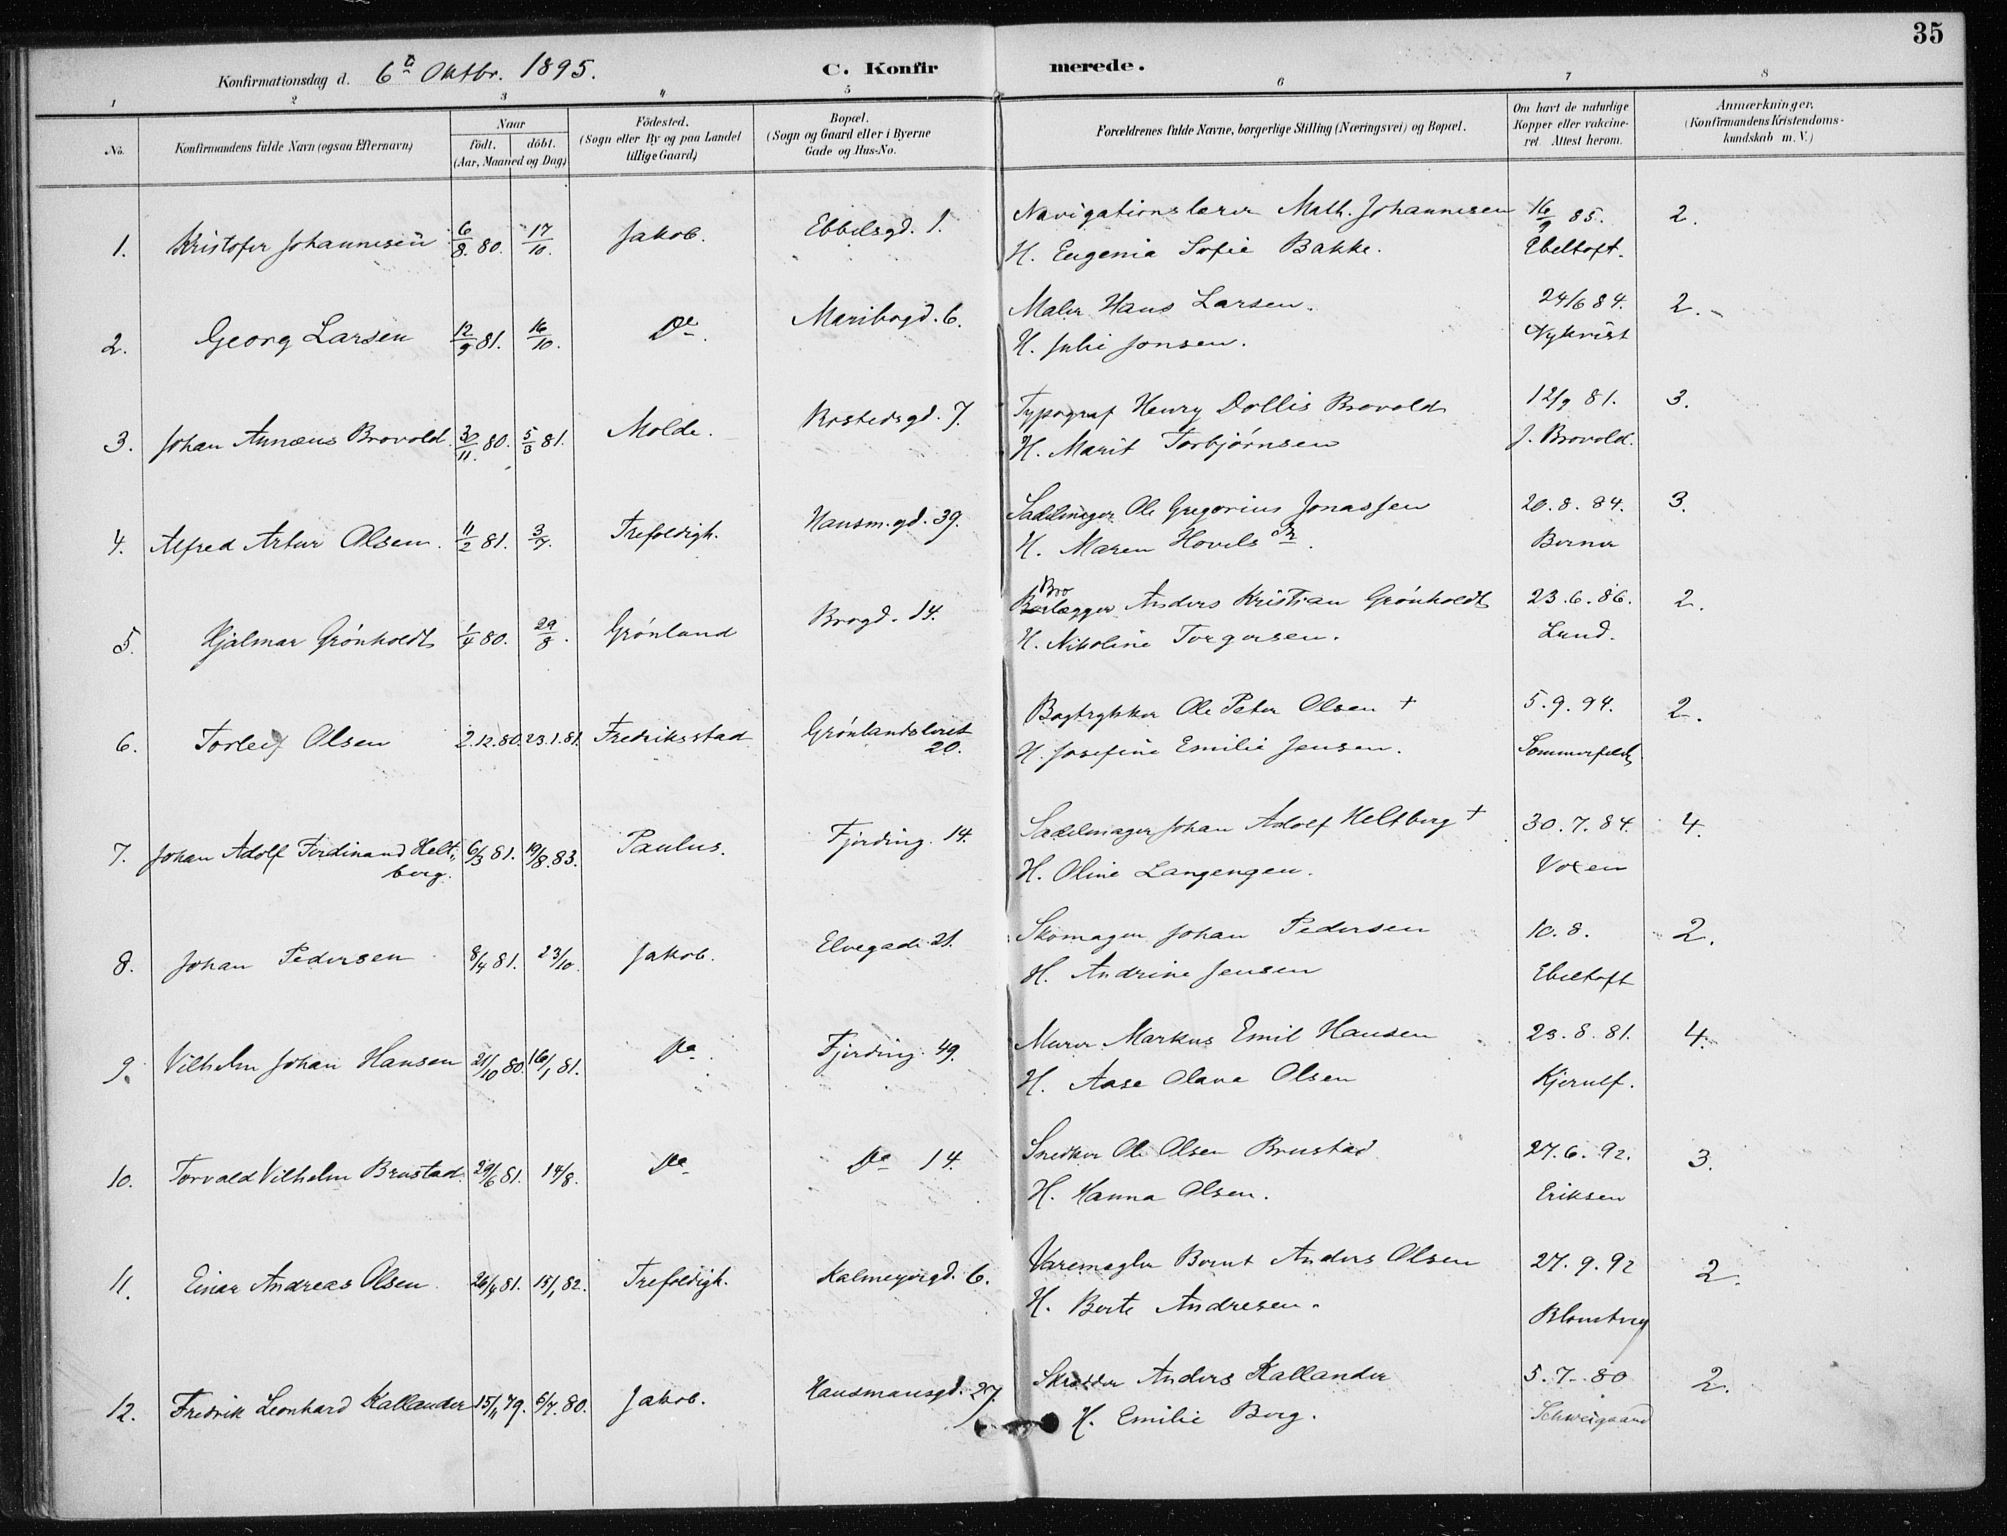 35
Konfirmationsdag d. 6te Oktbr. 1895. C. Konfirmerede.
1 2 3 4 5 6 7 8
No. Konfirmandens fulde Navn (ogsaa Efternavn) Naar født. døbt. (Aar, Maaned og Dag) Fødested. (Sogn eller By og paa Landet tillige Gaard) Bopæl. (Sogn og Gaard eller i Byerne Gade og Hus-No. Forældrenes fulde Navne, borgerlige Stilling (Næringsvei) og Bopæl. Om havt de naturlige Kopper eller vakcineret. Attest herom. Anmærkninger. (Konfirmandens Kristendomskundskab m. V.)
1. Kristofer Johannesen 6/8. 80. 17/10. Jakob. Ebbelsgd. 1. Navigationslærer Math. Johannesen 16/9 85. 2.
H. Eugenia Sofie Bakke. Ebeltoft.
2. Georg Larsen 12/9 81. 16/10. Do. Maribogd. 6. Maler Hans Larsen. 24/6 84. 2.
H. Julie Jonsen. Nykvist
3. Johan Annæus Brovold 30/11. 80. 5/3 81. Molde. Korstedsgd. 7. Typograf Henry Dollis Brovold 12/9 81. 3.
H. Marit Torbjørnsen J. Brovold.
4. Alfred Artur Olsen. 11/2 81. 3/7. Trefoldigh. Hausm.gd. 39. Sadelmager Ole Gregorius Jonassen 20.8.84. 3.
H. Maren Hovels Dr. Berner
5. Hjalmar Grønholdt 1/4 80. 29/8. Grønland Brogd. 14. Brolægger Anders Kristian Grønholdt 23.6.86. 2.
H. Nikoline Torgersen. Lund.
6. Torleif Olsen 2.12.80. 23.1.81. Fredriksstad Grønlandsleret 20. Bogtrykker Ole Peter Olsen + 5.9.94. 2.
H. Josefine Emilie Jensen. Sommerfeldt
7. Johan Adolf Ferdinand Heltberg. 6/3 81. 19/8. 83. Paulus. Fjerding. 14. Sadelmager Johan Adolf Heltberg + 30.7.84. 4.
H. Oline Langengen. Voxen
8. Johan Pedersen 8/4 81. 23/10. Jakob. Elvegade 21. Skomager Johan Pedersen 10.8. 2.
H. Andrine Jensen Ebeltoft
9. Vilhelm Johan Hansen 21/10 80. 16/1 81. Do. Fjerding. 49. Murer Markus Emil Hansen 23.8.81. 4.
H. Aase Olava Olsen Kjerulf.
10. Torvald Vilhelm Brustad. 29/6 81. 14/8. Do Do 14. Snedker Ole Olsen Brustad 27.6.92. 3.
H. Hanna Olsen. Eriksen
11. Einar Andreas Olsen. 26/4 81. 15/1 82. Trefoldigh. Kalmeyergd. 6. Varemægler Bernt Anders Olsen 27.9.92 2.
H. Berte Andresen. Blomberg
12. Fredrik Leonhard Kallander 15/11 79. 6/7. 80. Jakob. Hausmansgd. 27. Skrædder Anders Kallander 5.7.80 2.
H. Emilie Berg. Schweigaard